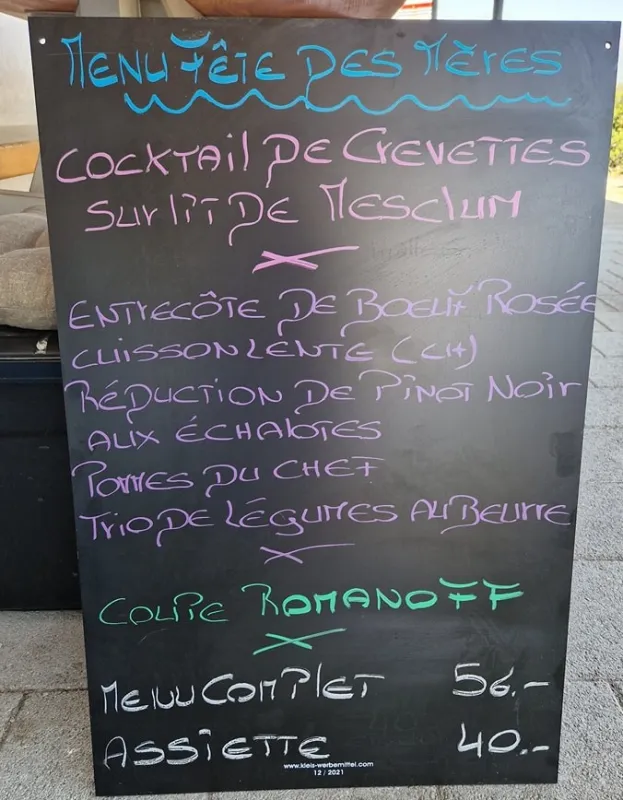 Menu Fête des Mères
Cocktail de Crevettes
sur lit de Mesclum
Entrecôte de Boeuf Rosée
cuisson lente (CH)
Réduction de Pinot Noir
aux échalotes
Pommes du chef
Trio de légumes au Beurre
Coupe Romanoff
Menu Complet 56.-
Assiette 40.-
www.kleis-werbemittel.com
12 / 2021